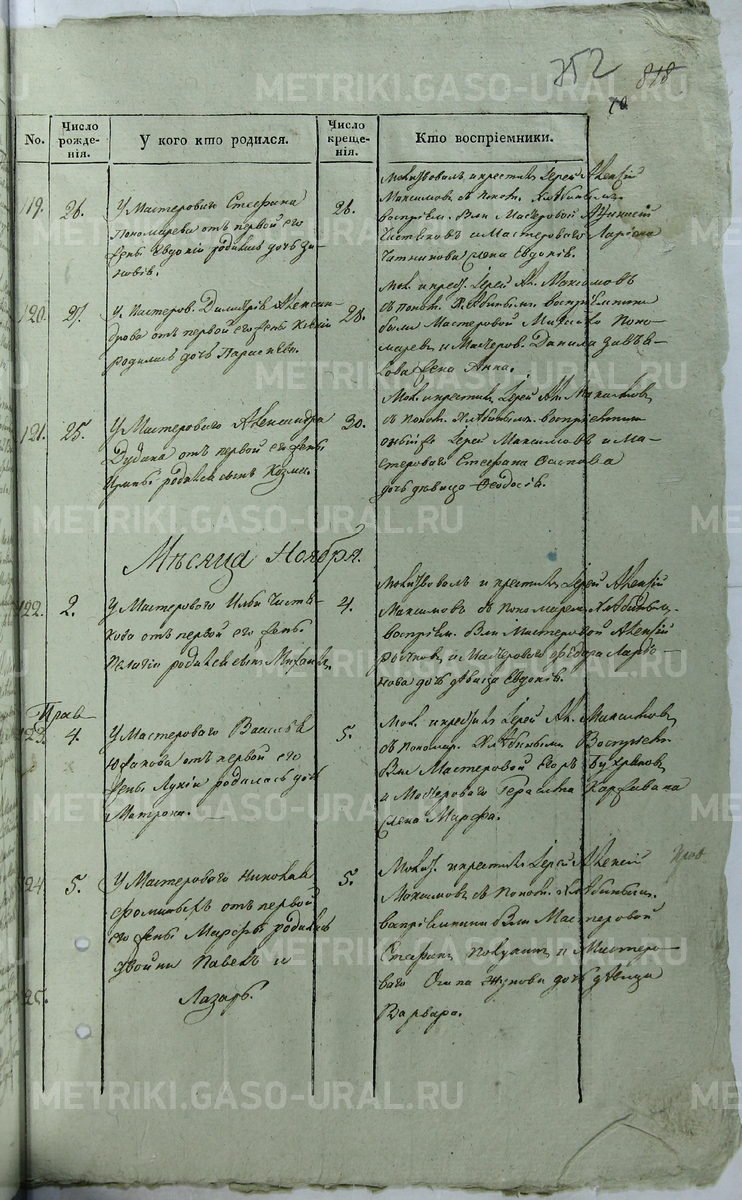 752 818.
70
No.
Число рожденія.
У кого кто родился.
Число крещенія.
Кто воспріемники.
119.
26.
У Мастероваго Стефана
Пономарева отъ первой его
жены Евдокіи родилась дочь Зи-
новія.
28.
Молитвовалъ и крестилъ Іерей Алексій
Максимовъ съ Поном. Хлѣбинымъ
воспріем. были Мастеровой Аѳанасій
Чистяковъ и Мастероваго Ларіона
жена Евдокія.
120.
27.
У Мастеров. Димитрія Алексан-
дрова отъ первой его жены Ксеніи
родилась дочь Параскева.
28.
Мол. и крест. Іерей Ал. Максимовъ
съ Поном. Хлѣбинымъ воспріемники
были Мастеровой Михайло Поно-
маревъ и Мастеров. Данила
жена Анна.
121.
25.
У Мастероваго Александра
Дудина отъ первой его жены
Ирины родился сынъ Козма.
30.
Мол. и крестилъ Іерей Ал. Максимовъ
съ Поном. Хлѣбинымъ воспріемники
Іерей Максимовъ и Ма-
стероваго Стефана Осипова
дочь дѣвица Ѳеодосія.
Мѣсяца Ноября.
122.
2.
У Мастероваго Ильи Чистя-
кова отъ первой его жены
Пелагіи родился сынъ Михаилъ.
4.
Молитвовалъ и крестилъ Іерей Алексій
Максимовъ съ Пономаремъ Хлѣбинымъ
воспріем. были Мастеровой Алексій
и Мастероваго Федора Ларіо-
нова дочь дѣвица Евдокія.
Прав
123.
4.
У Мастероваго Василья
отъ первой его
жены Лукіи родилась дочь
Матрона.
5.
Мол. и крестилъ Іерей Ал. Максимовъ
съ Пономар. Хлѣбинымъ Воспріем.
были Мастеровой Егоръ
и Мастероваго Герасима
жена Марфа.
124
5.
У Мастероваго Николая
Фоминыхъ отъ первой
его жены Марѳы родились
двойни Павелъ и
125.
Лазарь.
5.
Молит. и крестилъ Іерей Алексій
Максимовъ съ Поном. Хлѣбинымъ
воспріемники были Мастеровой
Стефанъ и Мастеро-
ваго Осипа Жукова дочь дѣвица
Варвара.
Прав
METRIKI.GASO-URAL.RU